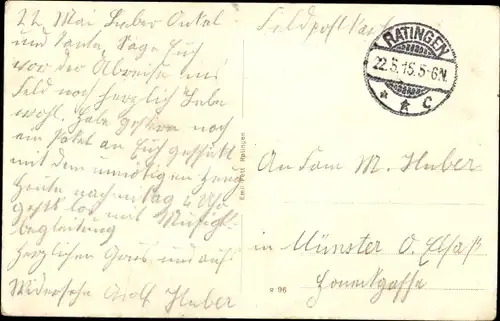 22 Mai Lieber Onkel
und Tante, Sage Euch
vor der Abreise ins
Feld noch herzlich Lebe
wohl. Habe gestern noch
ein Paket an Euch geschickt
mit dem unnötigen Zeug
Heute nachmittag 4 Uhr
geht los mit Musigk-
begleitung
herzlichen Grus und auf
Widersehe Adolf Huber
Emil Pott Ratingen
Feldpostkarte
RATINGEN
22.5.15.5-6N.
* * C
An Fam M. Huber
in Münster O. Elsaß
9 96